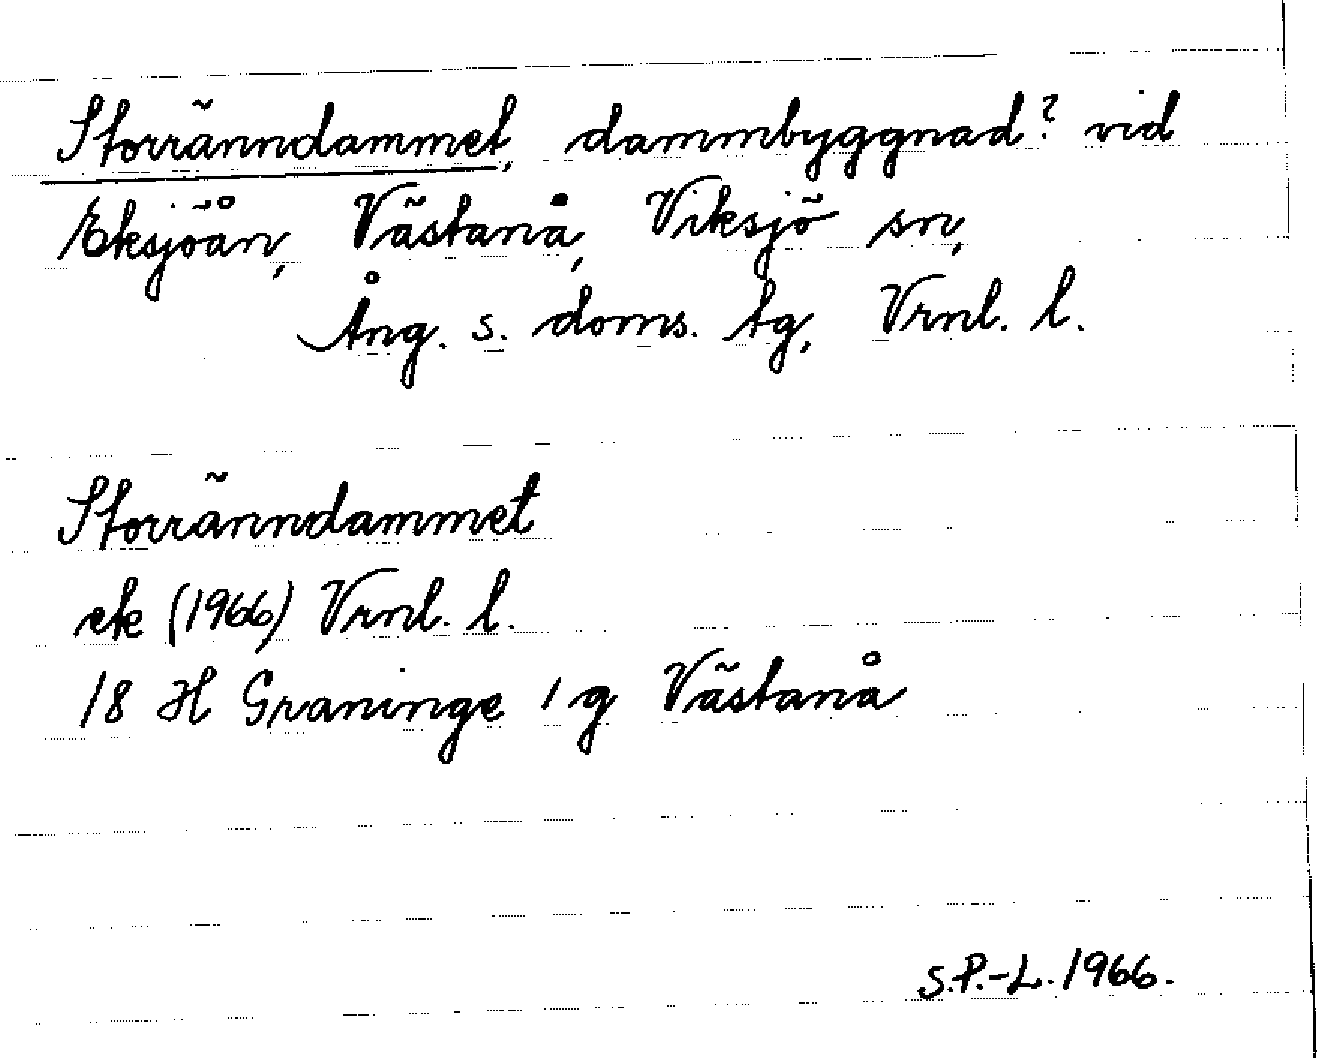 Storränndammet, dammbyggnad? vid
Eksjöån, Västanå, Viksjö sn,
Ång. s. doms. tg, Vrnl. l.
Storränndammet
ek (1966) Vrnl. l.
18 H Graninge 1 g Västanå
S.P.-L. 1966.